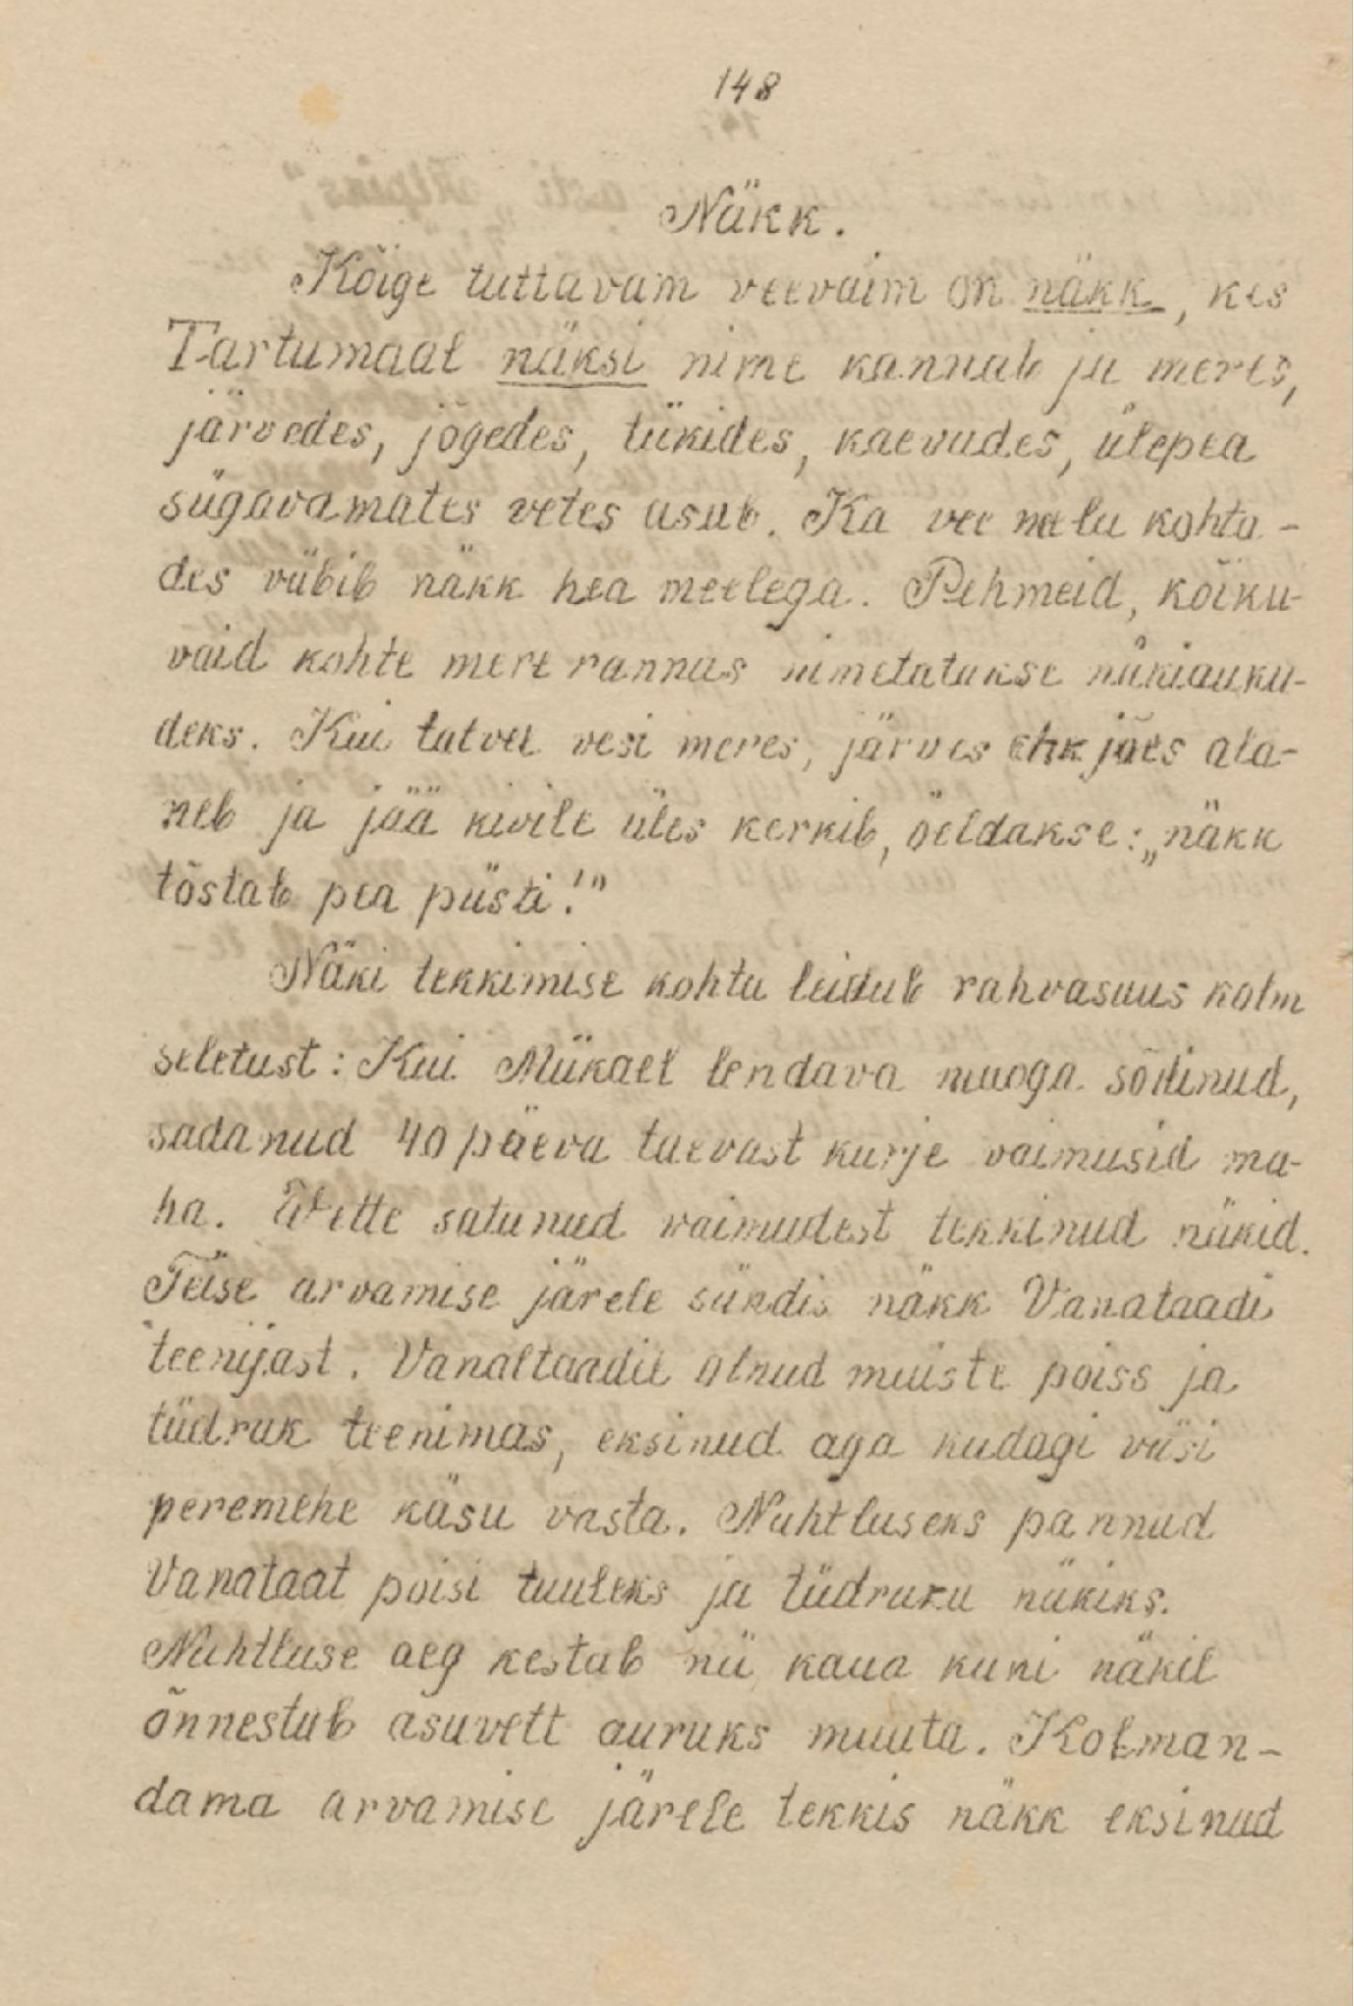 148
Näkk.
Kõige tuttavam veevaim on näkk, kes
Tartumaal näksi nime kannab ja meres,
järvedes, jõgedes, tiikides, kaevudes, ülepea
sügavamates vetes asub. Ka vee neelu kohta-
des viibib näkk hea meelega. Pehmeid, kõiku-
vaid kohte mere rannas nimetatakse näkiauku-
deks. Kui talvel vesi meres, järves ehk jões ala-
neb ja jää kivile üles kerkib, öeldakse: „näkk
tõstab pea püsti!"
Näki tekkimise kohta leidub rahvasuus kolm
seletust: Kui Miikael lendava muoga sõdinud,
sadanud 40 päeva taevast kurje vaimusid ma-
ha. Vette satunud vaimudest tekkinud näkid.
Teise arvamise järele sündis näkk Vanataadi
teenijast. Vanaltaadil olnud muiste poiss ja
tüdruk teenimas, eksinud aga kudagi viisi
peremehe käsu vasta. Nuhtluseks pannud
Vanataat poisi tuuleks ja tüdruku näkiks.
Nuhtluse aeg kestab nii kaua kuni näkil
õnnestub asuvett auruks muuta. Kolman-
dama arvamise järele tekkis näkk eksinud